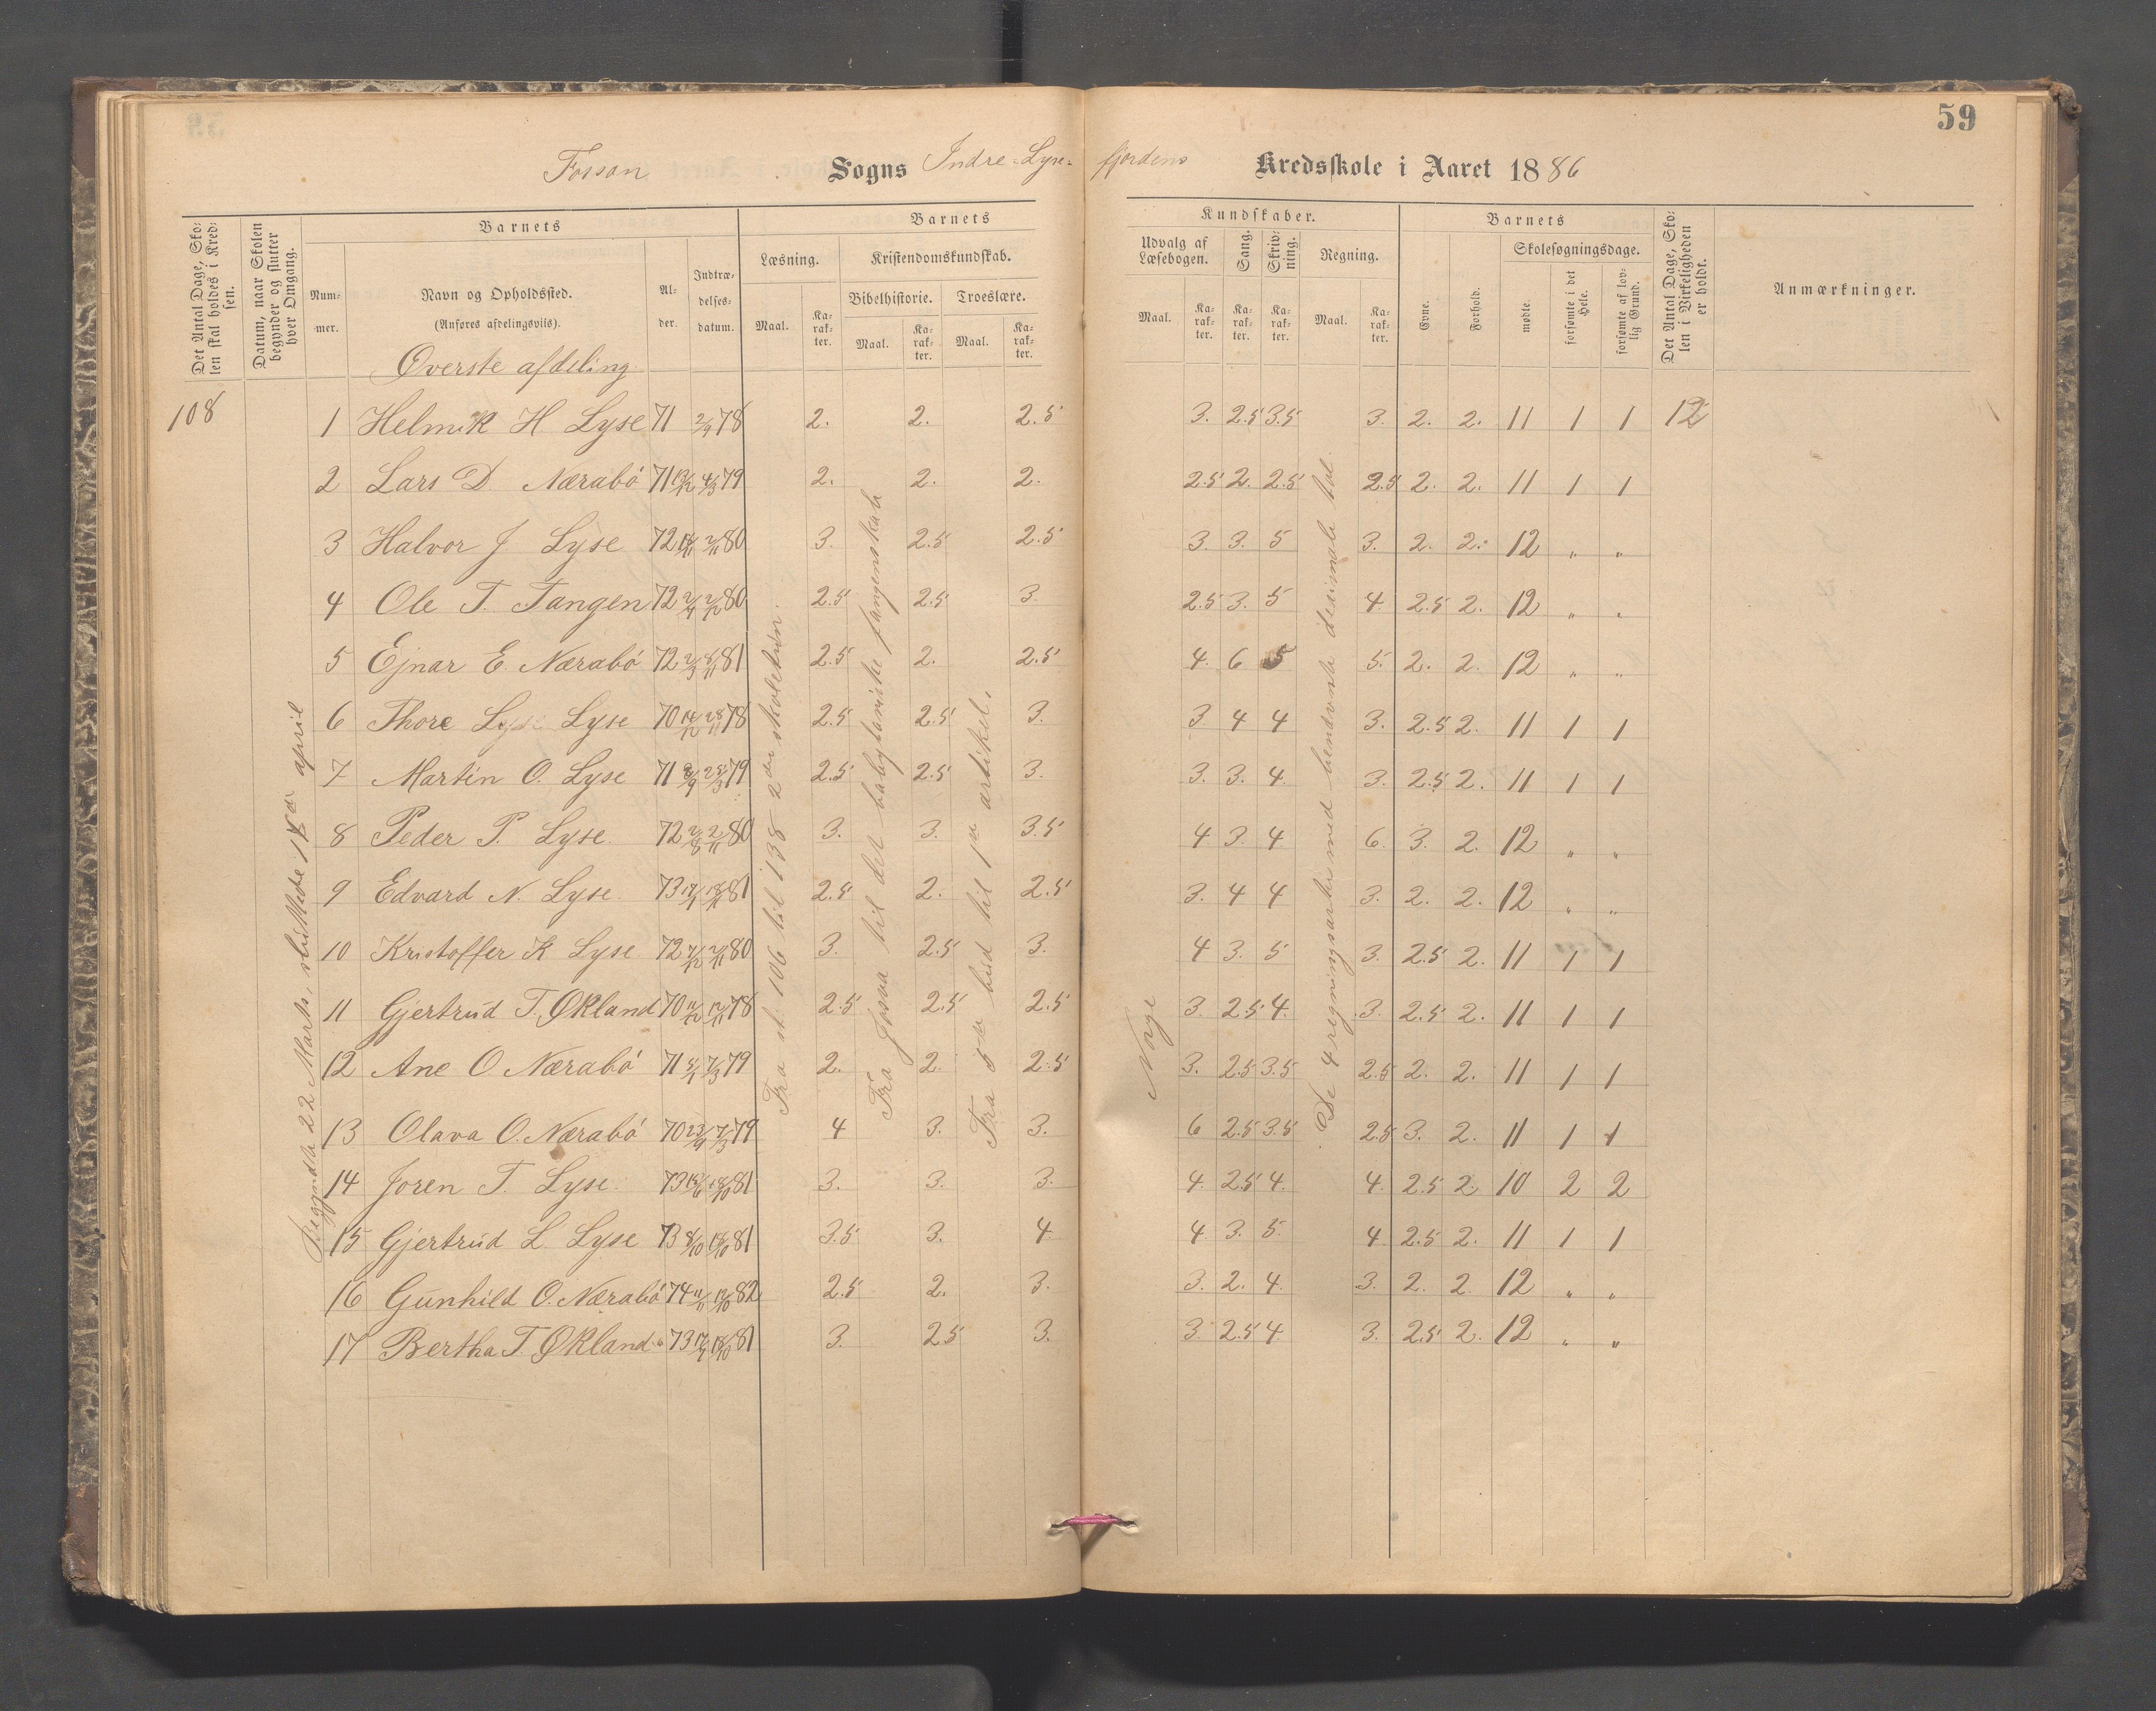 59
Fossan Sogns Indre-Lyse-fjordens Kredsskole i Aaret 1886
Det Antal Dage, Skolen skal holdes i Kredsen.
Datum, naar Skolen begynder og slutter hver Omgang.
Barnets
Nummer.
Navn og Opholdssted.
(Anføres afdelingsvis).
Alder.
Indtrædelsesdatum.
Barnets Kundskaber.
Læsning.
Maal.
Karakter.
Kristendomskundskab.
Bibelhistorie.
Maal.
Karakter.
Troeslære.
Maal.
Karakter.
Udvalg af Læsebogen.
Maal.
Karakter.
Sang.
Karakter.
Skrivning.
Karakter.
Regning.
Maal.
Karakter.
Barnets
Evne.
Forhold.
Skolesøgningsdage.
mødte.
forsømte i det Hele.
forsømte af lovlig Grund.
Det Antal Dage, Skolen i Virkeligheden er holdt.
Anmærkninger.
Øverste afdeling
108 1 Helmik H Lyse 71 2/9 78 2. 2. 2.5 3. 2.5 3.5 3. 2. 2. 11 1 1 12
2 Lars D. Nærabö 71 79 2. 2. 2. 2.5 2. 2.5 2.5 2. 2. 11 1 1
3 Halvor J Lyse 72 2/11 80 3. 2.5 2.5 3. 3. 5 3. 2. 2. 12 " "
4 Ole T. Tangen 72 80 2.5 2.5 3. 2.5 3. 5 4. 2.5 2. 12 " "
5 Ejnar E. Nærabö 72 2/3 8/11 81 2.5 2. 2.5 4. 6 5 5. 2. 2. 12 " "
6 Thore Lyse 70 14/12 28/11 78 2.5 2.5 3. 3 4 4 3. 2.5 2. 11 1 1
7 Martin O. Lyse 71 8/9 25/3 79 2.5 2.5 3. 3. 3. 4. 3. 2.5 2. 11 1 1
8 Peder P. Lyse. 72 2/8 2/11 80 3. 3. 3.5 4 3. 4 6. 3. 2. 12 " "
9 Edvard N. Lyse. 73 81 2.5 2. 2.5 3. 4 4 3. 2. 2. 12 " "
10 Kristoffer K Lyse. 72 80 3. 2.5 3. 4 3. 5 3. 2.5 2. 11 1 1
11 Gjertrud T. Økland 70 11/12 12/11 78 2.5 2.5 2.5 3. 2.5 4. 3. 2.5 2. 11 1 1
12 Ane O Nærabö 71 7/3 79 2. 2. 2.5 3. 2.5 3.5 2.5 2. 2. 11 1 1
13 Olava O. Nærabö 70 23/9 7/3 79 4 3. 3. 6 2.5 3.5 2.5 3. 2. 11 1 1
14 Joren T. Lyse. 73 18/10 81 3. 3. 3. 4. 2.5 4. 4. 2.5 2. 10 2 2
15 Gjertrud L. Lyse 73 8/10 18/10 81 3.5 3. 4. 4. 3. 5. 4. 2.5 2. 11 1 1
16 Gunhild O. Nærabö 74 11/11 82 2.5 2. 3. 3. 2. 4. 3. 2. 2. 12 " "
17 Bertha T. Økland 73 18/10 81 3. 2.5 3. 3. 2.5 4. 3. 2.5 2. 12 " "
Begyndte 22 Marts, sluttede april
Fra st. 106 til 138 2den skoletrin.
Fra Josva til det babyloniske fangenskab
Fra 5te bud til 1ste artikel.
Norge
De 4 regningsarter med benævnte desimale tal.